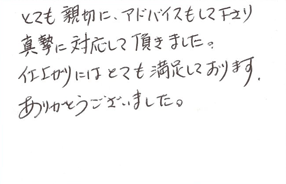 とても親切に、アドバイスもして下さり
真摯に対応して頂きました。
仕上がりにはとても満足しております。
ありがとうございました。